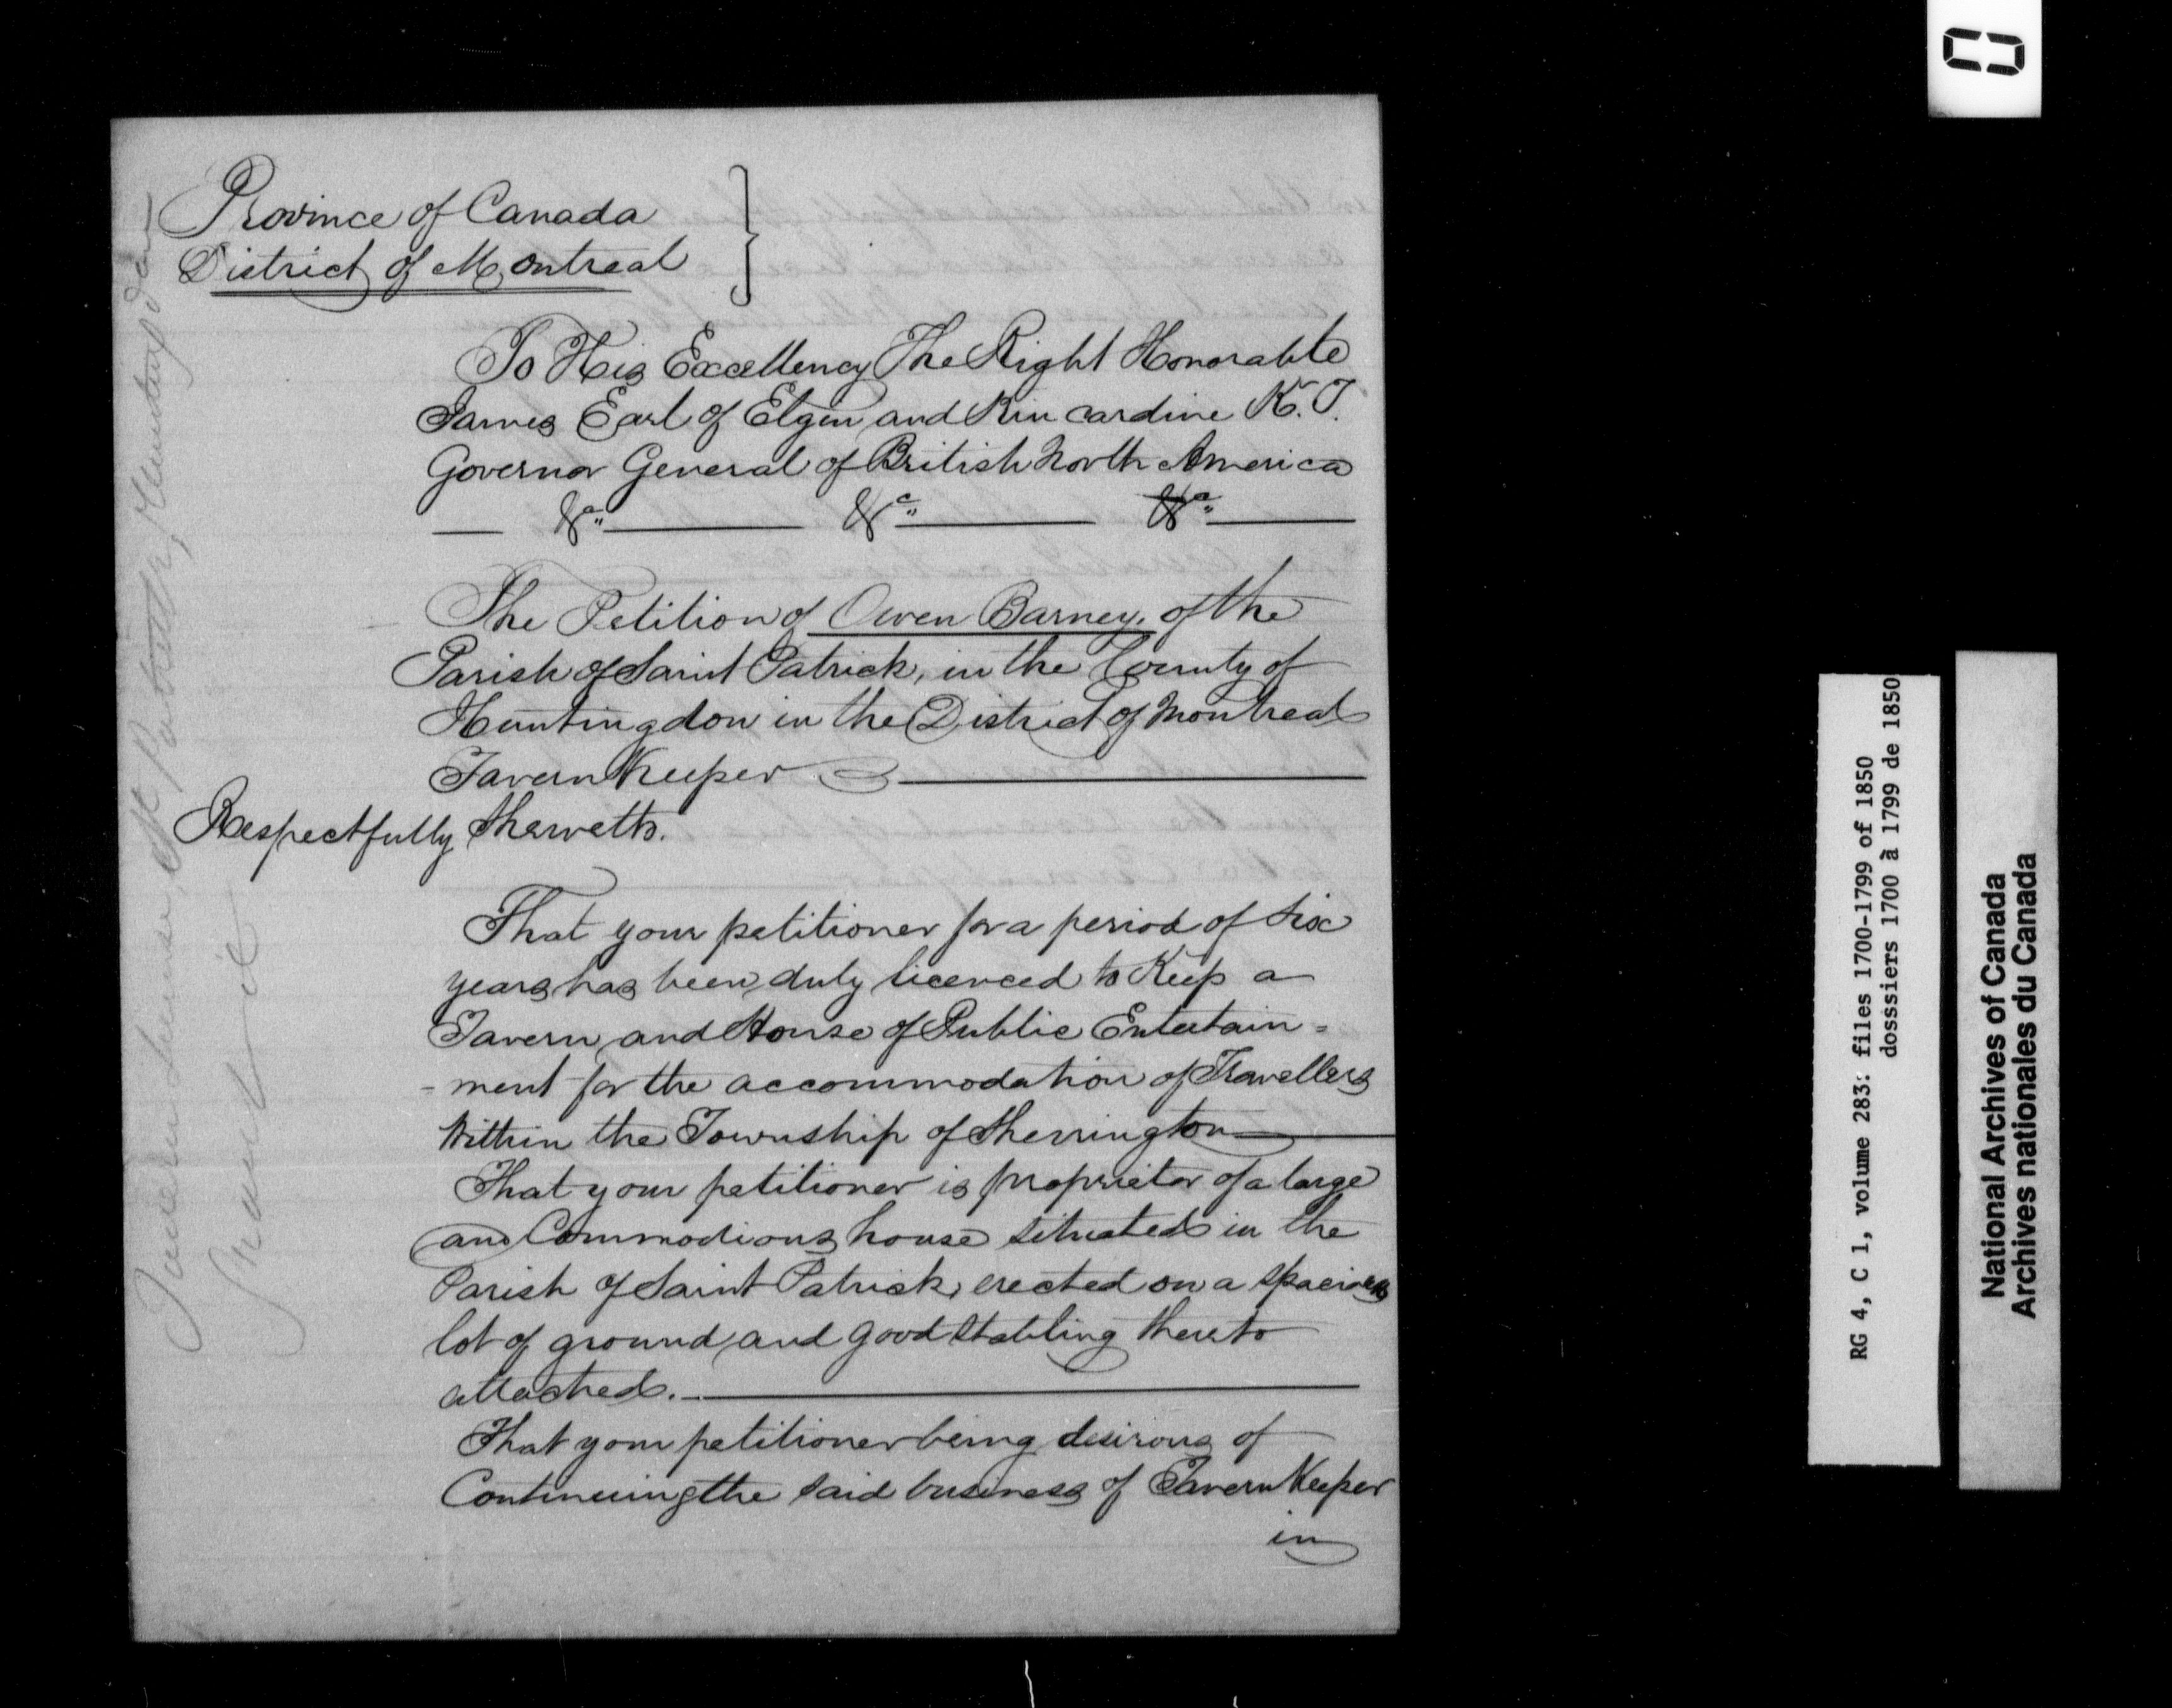 Province of Canada
District of Montreal
To His Excellency The Right Honorable
James Earl of Elgin and Kincardine K.T.
Governor General of British North America
&a. &c. &a.
The Petition of Owen Barney, of the
Parish of Saint Patrick, in the County of
Huntingdon in the District of Montreal
Tavern Keeper
Respectfully Sheweth.
That your petitioner for a period of Six
years has been duly licenced to Keep a
Tavern and House of Public Entertain=
-ment for the accommodation of Travellers
Within the Township of Sherrington
That your petitioner is proprietor of a large
and Commodious house situated in the
Parish of Saint Patrick, erected on a spacious
lot of ground and good Stabling thereto
attached.
That your petitioner being desirous of
Continuing the said business of Tavern Keeper
in
Tavern license St
Grant it
RG 4, C 1, volume 283: files 1700-1799 of 1850
dosssiers 1700 à 1799 de 1850
National Archives of Canada
Archives nationales du Canada